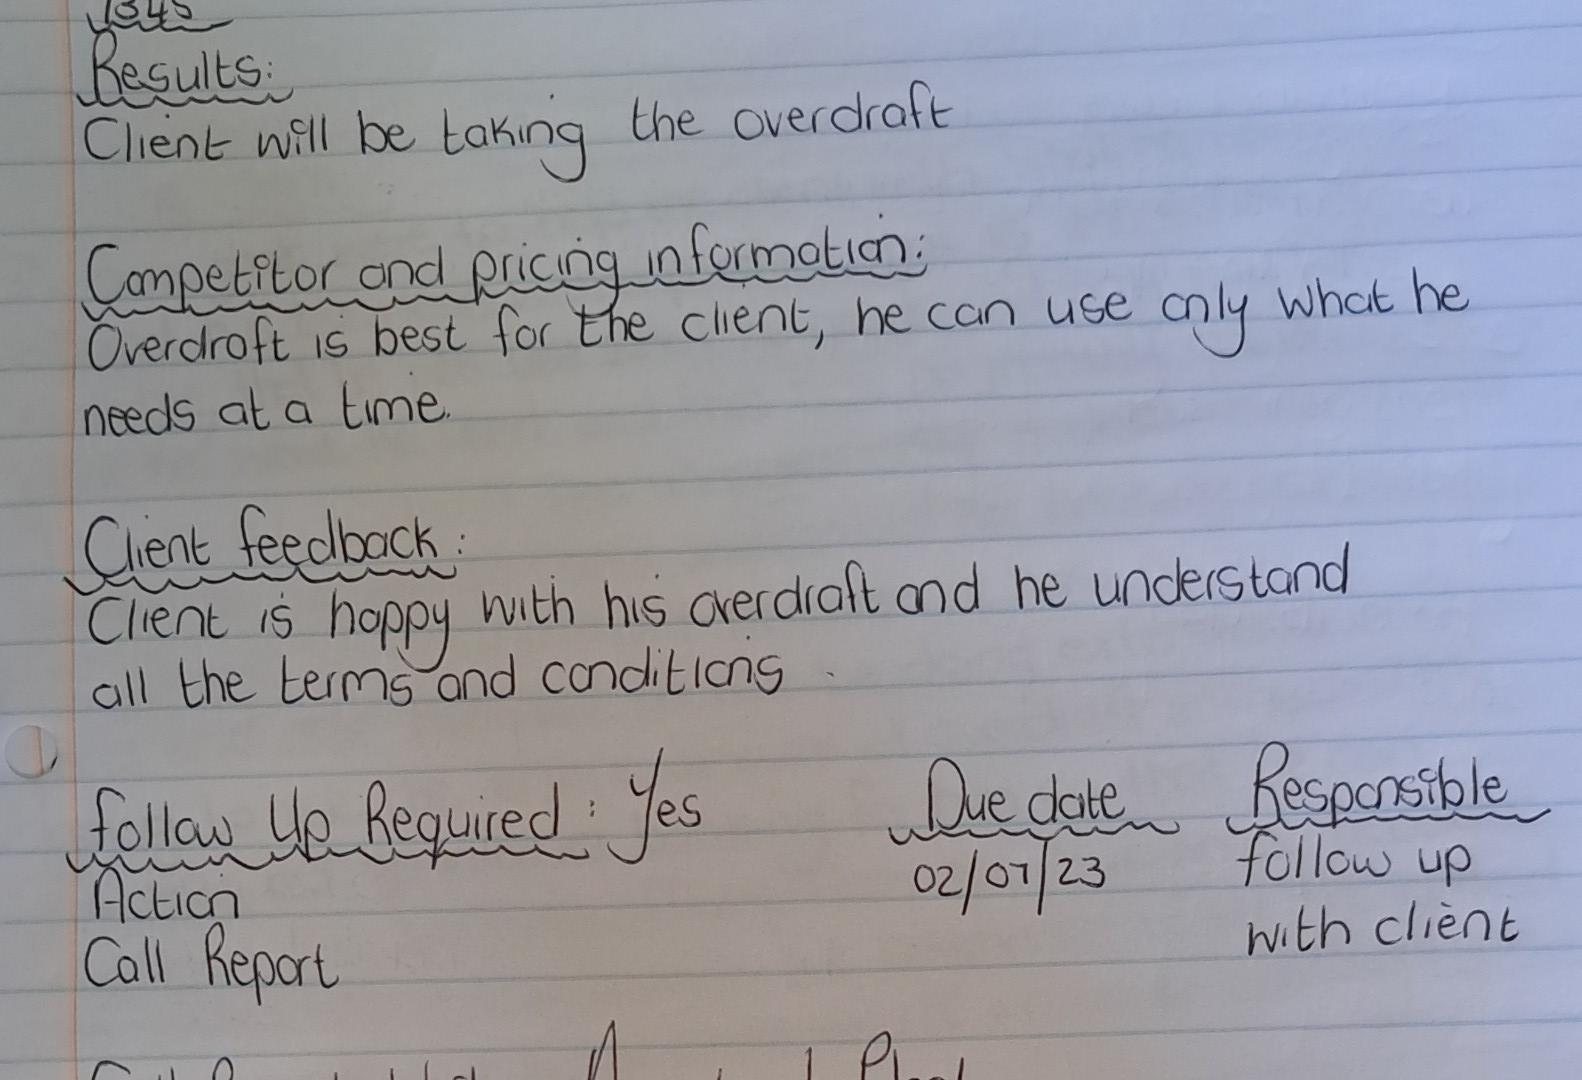 Results:
Client will be taking the overdraft
Competitor and pricing information:
Overdraft is best for the client, he can use only what he
needs at a time.
Client feedback:
Client is happy with his overdraft and he understand
all the terms and conditions.
Follow Up Required: Yes Due date Responsible
Action 02/07/23 follow up
Call Report with client